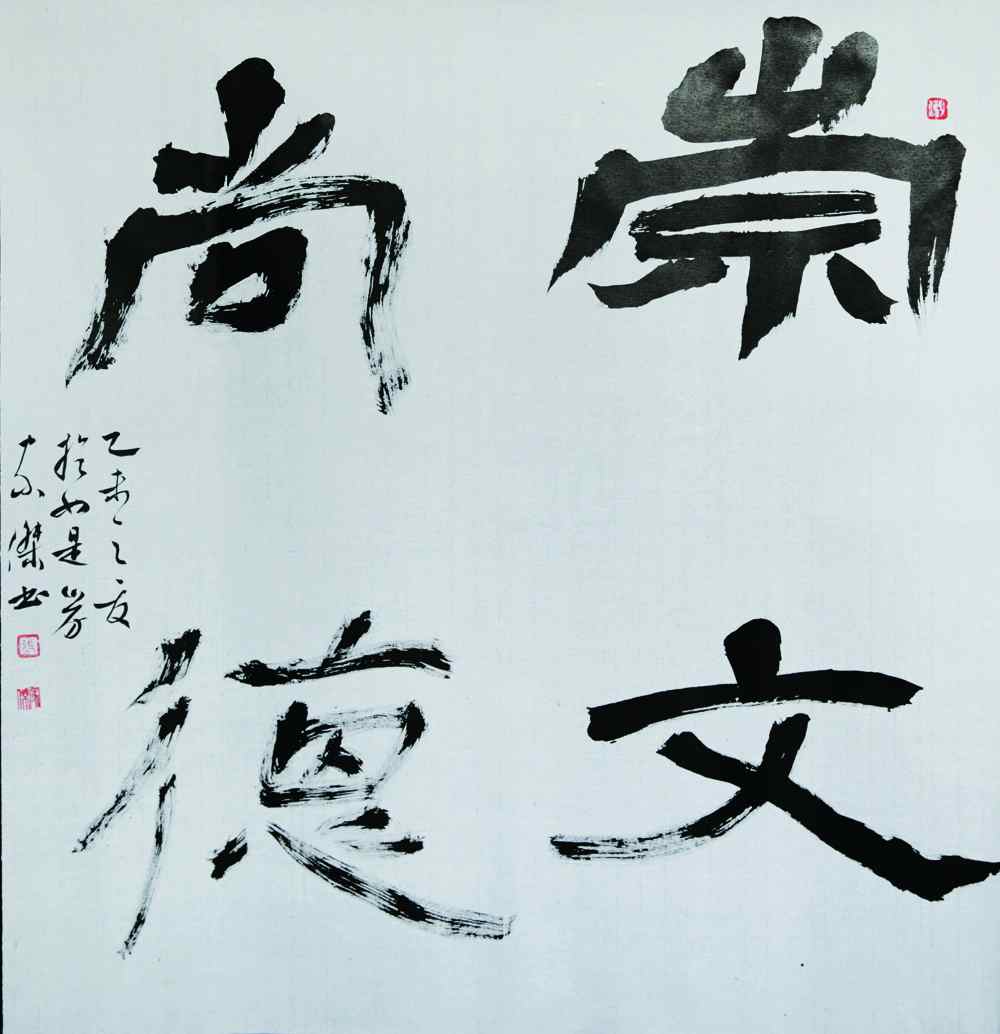 崇文
尚德
乙未之夏
於如是劳
家傑书